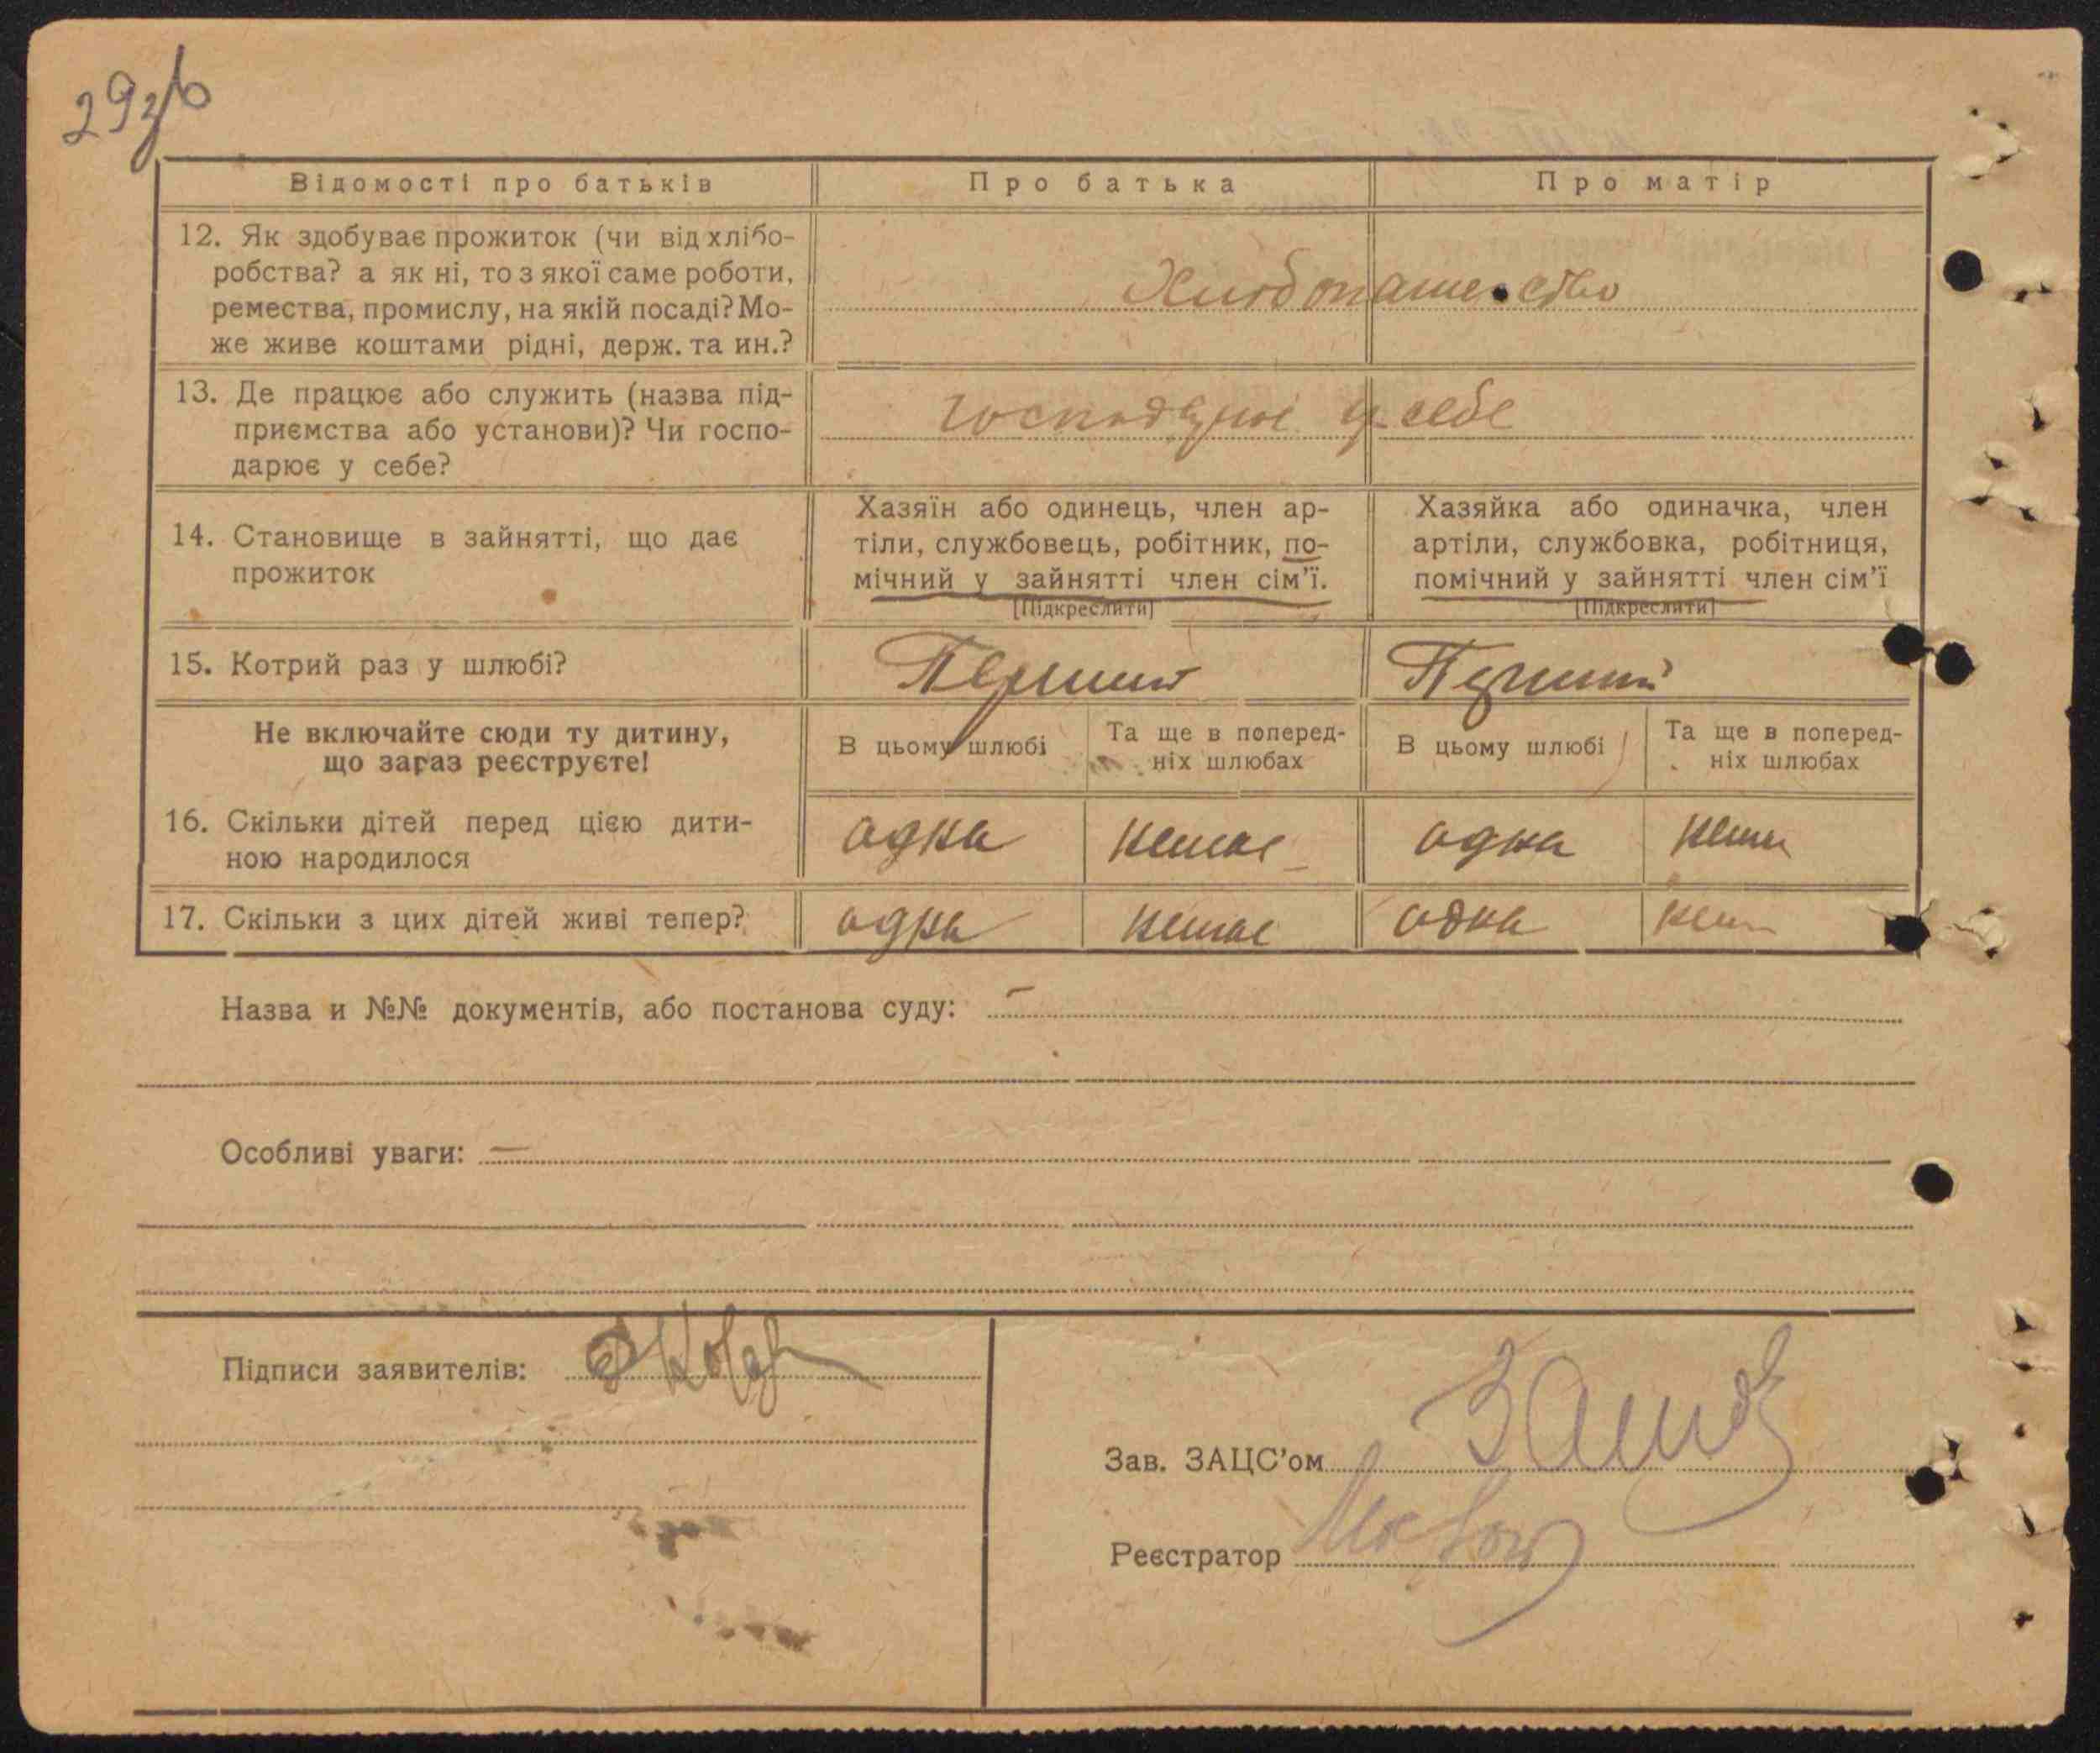 29зв
Відомості про батьків
Про батька
Про матір
12. Як здобуває прожиток (чи від хлібо-
робства? а як ні, то з якої саме роботи,
ремества, промислу, на якій посаді? Мо-
же живе коштами рідні, держ. та ин.?
Хлібопашество
13. Де працює або служить (назва під-
приємства або установи)? Чи госпо-
дарює у себе?
у себе
14. Становище в зайнятті, що дає
прожиток
Хазяїн або одинець, член ар-
тіли, службовець, робітник, по-
мічний у зайнятті член сім'ї.
[Підкреслити]
Хазяйка або одиначка, член
артіли, службовка, робітниця,
помічний у зайнятті член сім'ї
[Підкреслити]
15. Котрий раз у шлюбі?
Перший
Перший
Не включайте сюди ту дитину,
що зараз реєструєте!
В цьому шлюбі
Та ще в поперед-
ніх шлюбах
В цьому шлюбі
Та ще в поперед-
ніх шлюбах
16. Скільки дітей перед цією дити-
ною народилося
одна
немає
одна
нема
17. Скільки з цих дітей живі тепер?
одна
немає
одна
Назва и №№ документів, або постанова суду: —
Особливі уваги: —
Підписи заявителів:
Зав. ЗАЦС'ом
Реєстратор